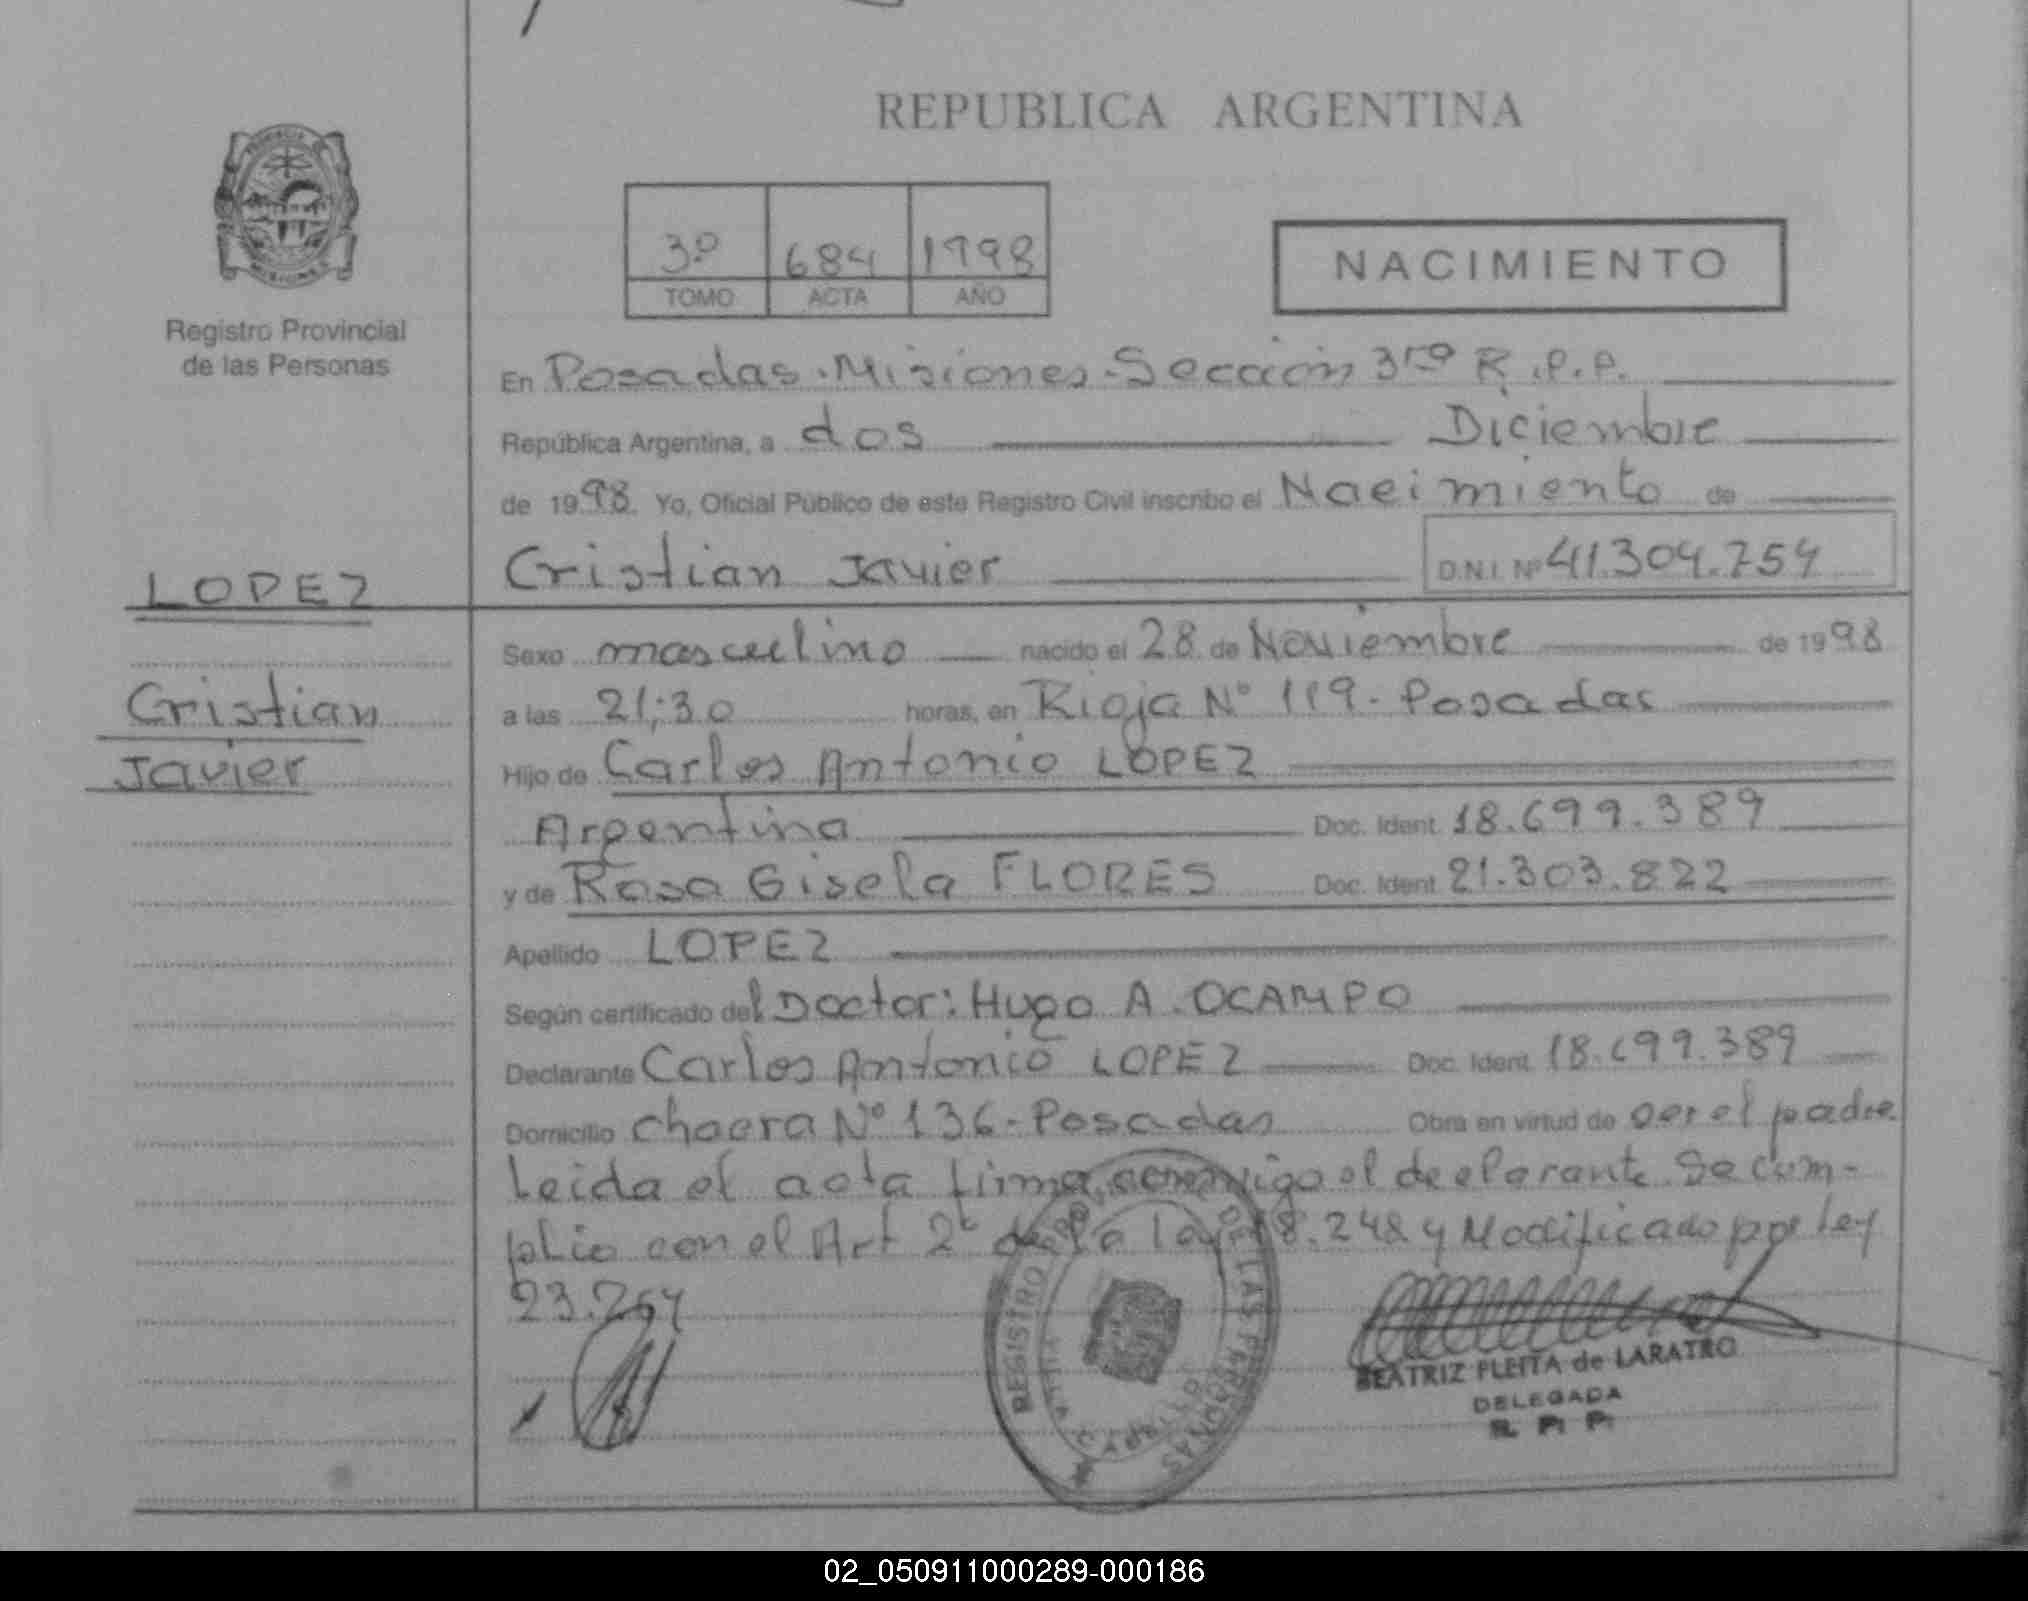 REPUBLICA ARGENTINA
3º 684 1998
TOMO ACTA AÑO
NACIMIENTO
Registro Provincial
de las Personas
En Posadas - Misiones - Sección 3ra R.P.P.
República Argentina, a dos Diciembre
de 1998. Yo, Oficial Público de este Registro Civil inscribo el Nacimiento de
Cristian Javier D.N.I. Nº 41.304.754
LOPEZ
Cristian
Javier
Sexo masculino nacido el 28 de Noviembre de 1998
a las 21:30 horas, en Rioja Nº 119 - Posadas
Hijo de Carlos Antonio LOPEZ
Argentina Doc. Ident. 18.699.389
y de Rosa Gisela FLORES Doc. Ident. 21.303.822
Apellido LOPEZ
Según certificado del Doctor: Hugo A. OCAMPO
Declarante Carlos Antonio LOPEZ Doc. Ident. 18.699.389
Domicilio chacra Nº 136 - Posadas Obra en virtud de ser el padre
Leida el acta firma conmigo el declarante. Se cum-
plio con el Art 2º de la ley 18.248 y Modificado por Ley
23.264
REGISTRO DE LAS PERSONAS
BEATRIZ FLEITA de LARATRO
DELEGADA
R. P. P.
02_050911000289-000186